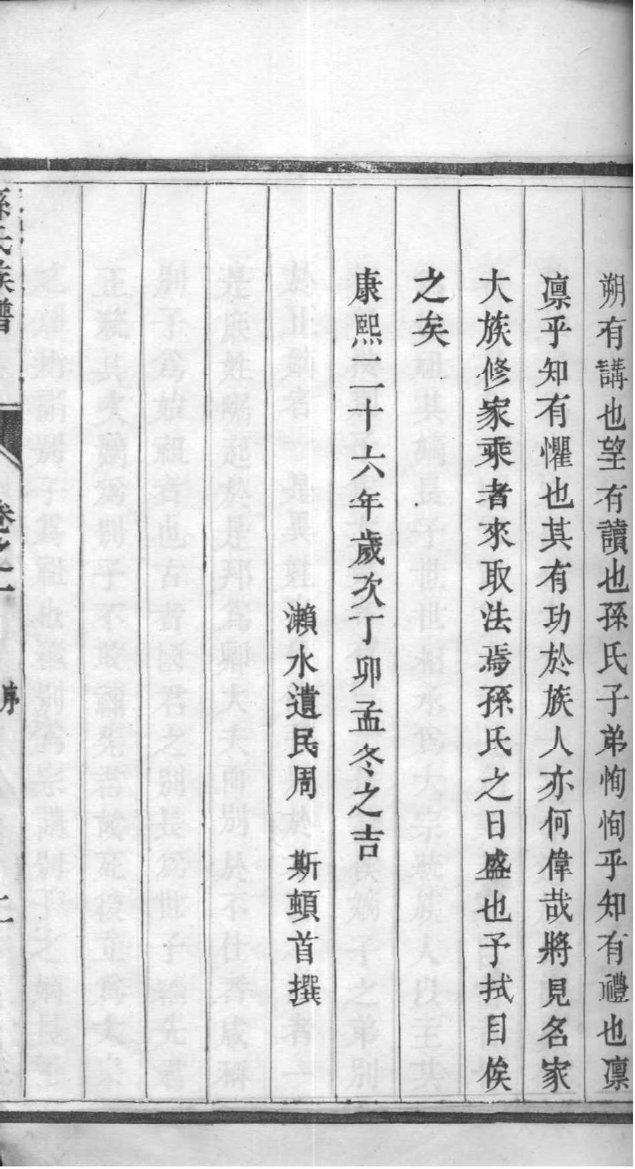 朔有講也望有讀也孫氏子弟恂恂乎知有禮也凛
凛乎知有懼也其有功於族人亦何偉哉將見名家
大族修家乘者來取法焉孫氏之日盛也予拭目俟
之矣
康熙二十六年歲次丁卯孟冬之吉
瀨水遺民周 斯頓首撰
孫氏族譜 卷之一 序